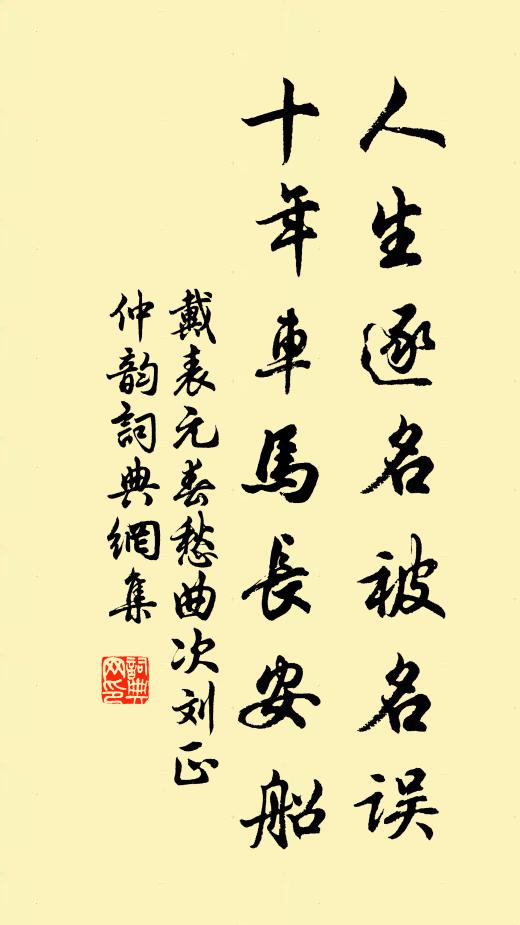 人生逐名被名误
十年車馬長安船
戴表元春愁曲次刘正
仲韵詞典網集
詞典网印